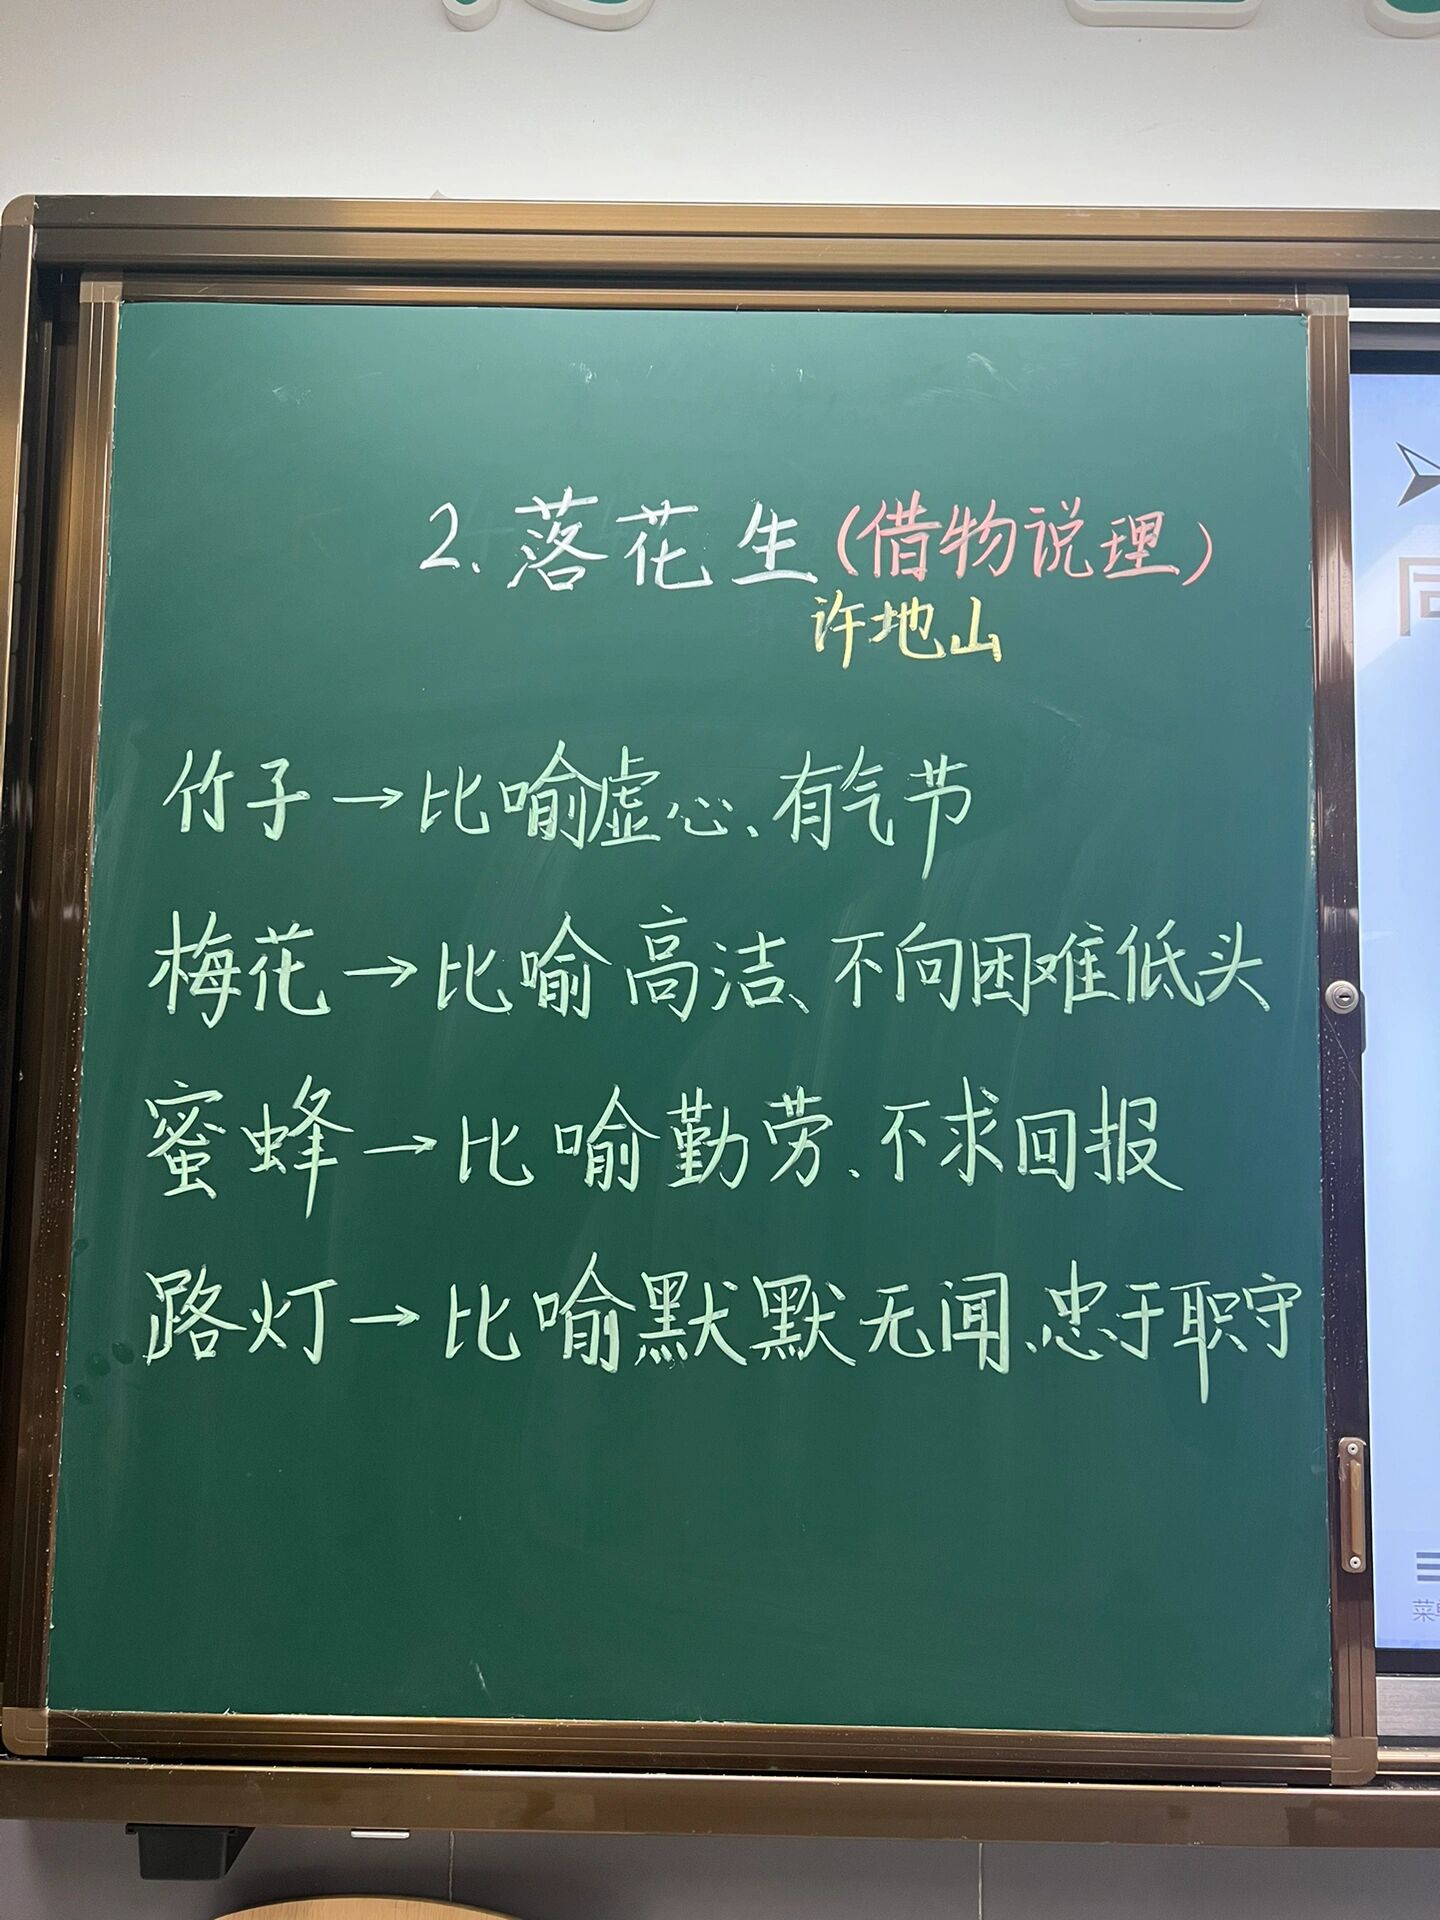 2.落花生(借物说理)
许地山
竹子→比喻虚心、有气节
梅花→比喻高洁、不向困难低头
蜜蜂→比喻勤劳、不求回报
路灯→比喻默默无闻、忠于职守